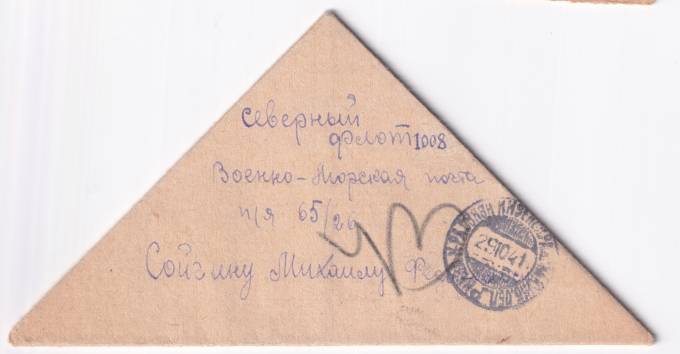 Северный
флот 1008
Военно-Морская почта
п/я 65/26
Сойгину Михаилу Фед
29 10 41